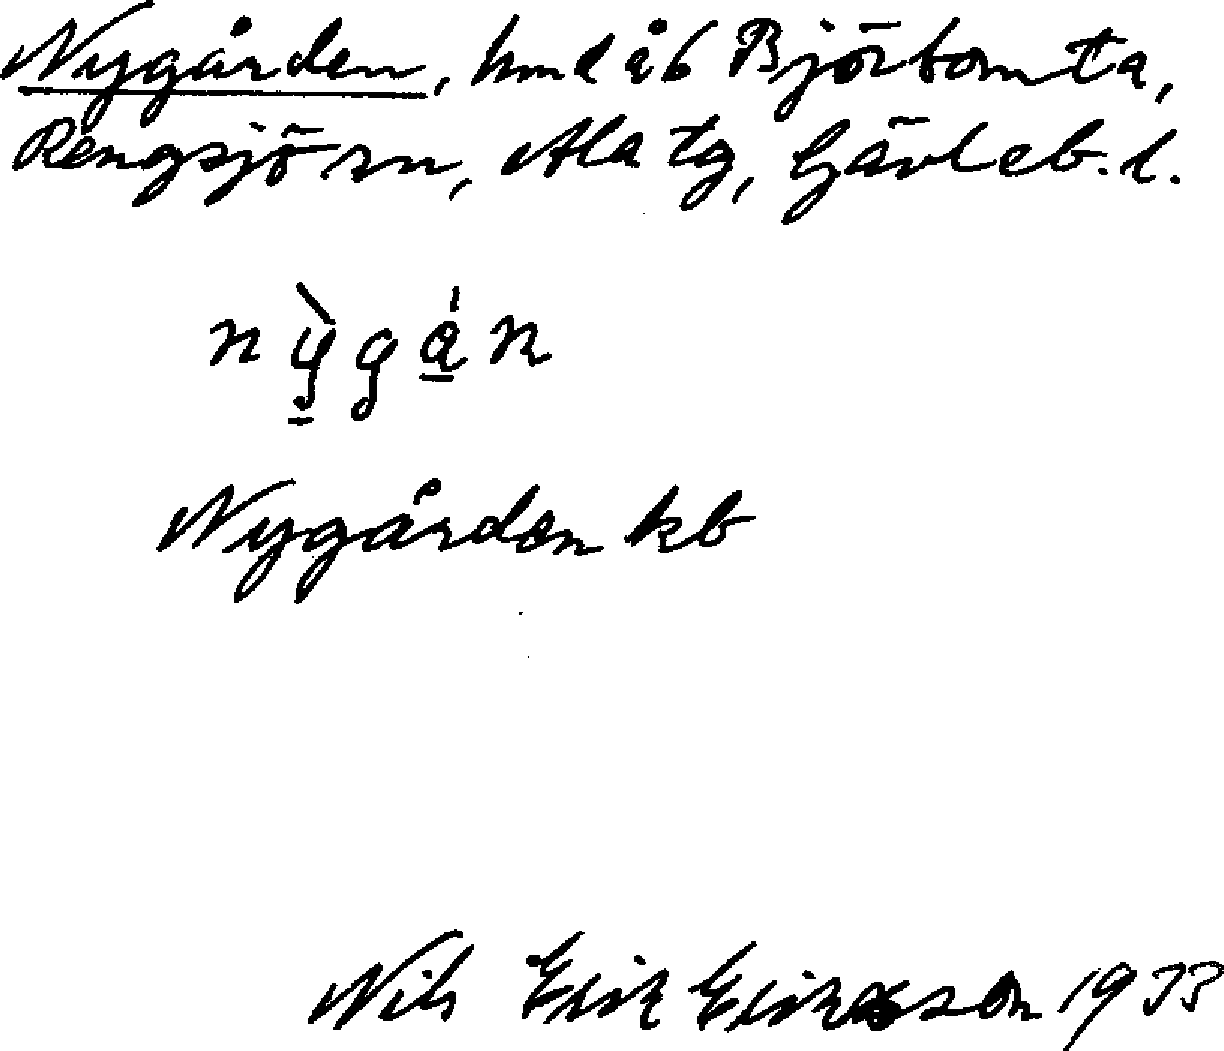 Nygården, hmd åb Björtomta,
Rengsjö sn, Ala tg, Gävleb. l.
nỳgán
Nygården kb
Nils Erik Eriksson 1933